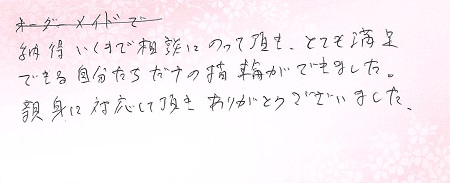 オーダーメイドで
納得いくまで相談にのって頂き、とても満足
できる自分たちだけの指輪ができました。
親身に対応して頂きありがとうございました。